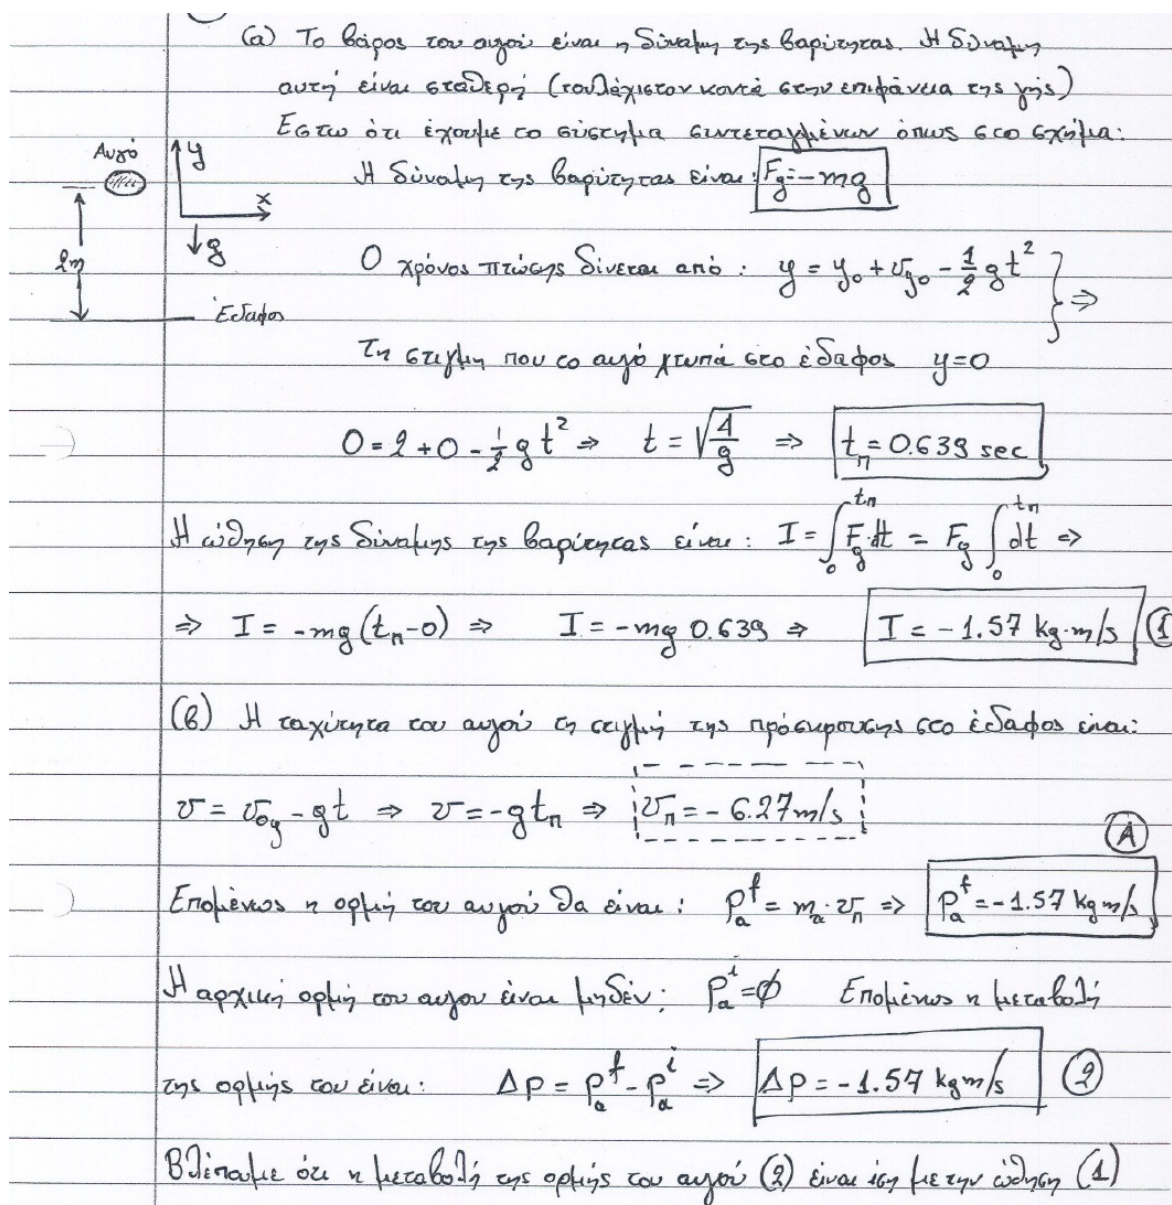 (α) Το βάρος του αυγού είναι η δύναμη της βαρύτητας. Η δύναμη
αυτή είναι σταθερή (τουλάχιστον κοντά στην επιφάνεια της γής)
Εστω ότι έχουμε το σύστημα συντεταγμένων όπως στο σχήμα:
Αυγό
y
x
g
2m
Έδαφος
Η δύναμη της βαρύτητας είναι: F_g = -mg
Ο χρόνος πτώσης δίνεται από: y = y_0 + v_{y0} - \frac{1}{2} g t^2 } ⇒
Τη στιγμη που το αυγό χτυπά στο έδαφος y=0
0 = 2 + 0 - \frac{1}{2} g t^2 ⇒ t = \sqrt{\frac{4}{g}} ⇒ t_π = 0.639 sec
Η ώθηση της δύναμης της βαρύτητας είναι: I = \int_0^{t_π} F_g·dt = F_g \int_0^{t_π} dt ⇒
⇒ I = -mg(t_π-0) ⇒ I = -mg 0.639 ⇒ I = -1.57 kg·m/s (1)
(β) Η ταχύτητα του αυγού τη στιγμή της πρόσκρουσης στο έδαφος είναι:
v = v_{0y} - gt ⇒ v = -gt_π ⇒ v_π = -6.27 m/s
(A)
Επομένως η ορμή του αυγού θα είναι: p_a^f = m_a·v_π ⇒ p_a^f = -1.57 kg m/s
Η αρχική ορμή του αυγου είναι μηδέν: p_a^i = 0 Επομένως η μεταβολή
της ορμής του είναι: Δp = p_a^f - p_a^i ⇒ Δp = -1.57 kg m/s (2)
Βλέπουμε ότι η μεταβολή της ορμής του αυγού (2) είναι ίση με την ώθηση (1)